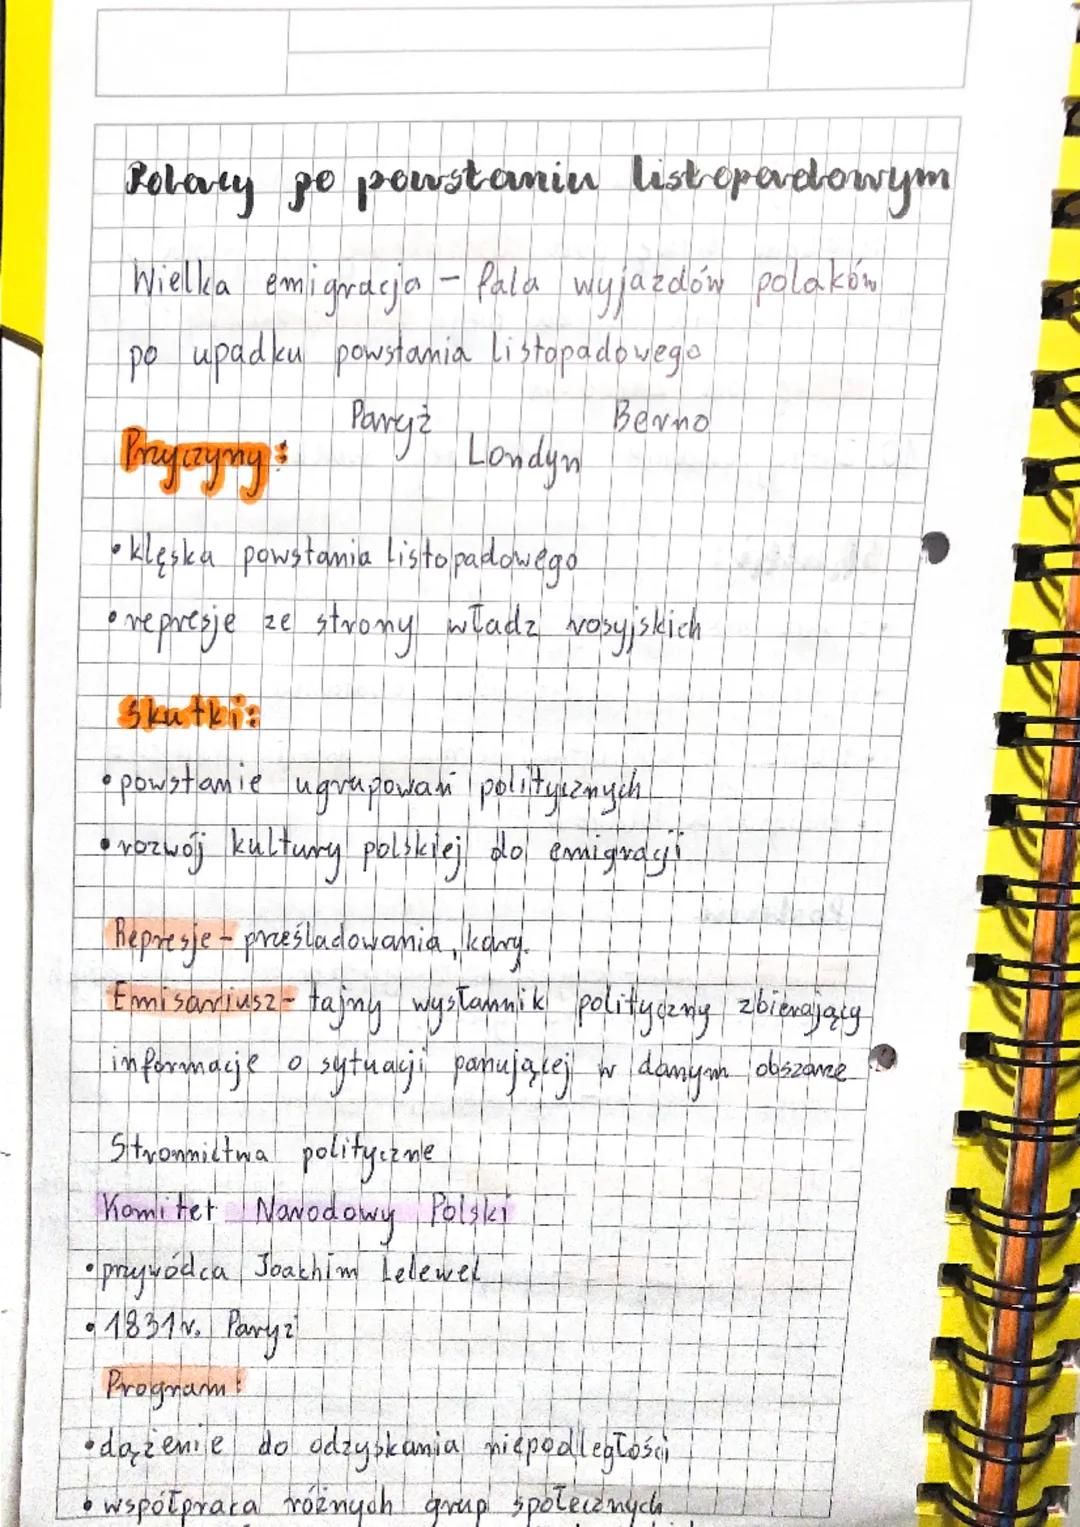 Polacy po powstaniu listopadowym
Wielka emigracja - fala wyjazdów polaków
po upadku powstania listopadowego
Paryż Berno
Przyczyny: Londyn
• klęska powstania listopadowego
• represje ze strony władz rosyjskich
Skutki:
• powstanie ugrupowań politycznych
• rozwój kultury polskiej do emigracji
Represje - prześladowania, kary.
Emisariusz - tajny wysłannik polityczny zbierający
informacje o sytuacji panującej w danym obszarze
Stronnictwa polityczne
Komitet Narodowy Polski
• przywódca Joachim Lelewel
• 1831 r. Paryż
Program:
• dążenie do odzyskania niepodległości
• współpraca różnych grup społecznych